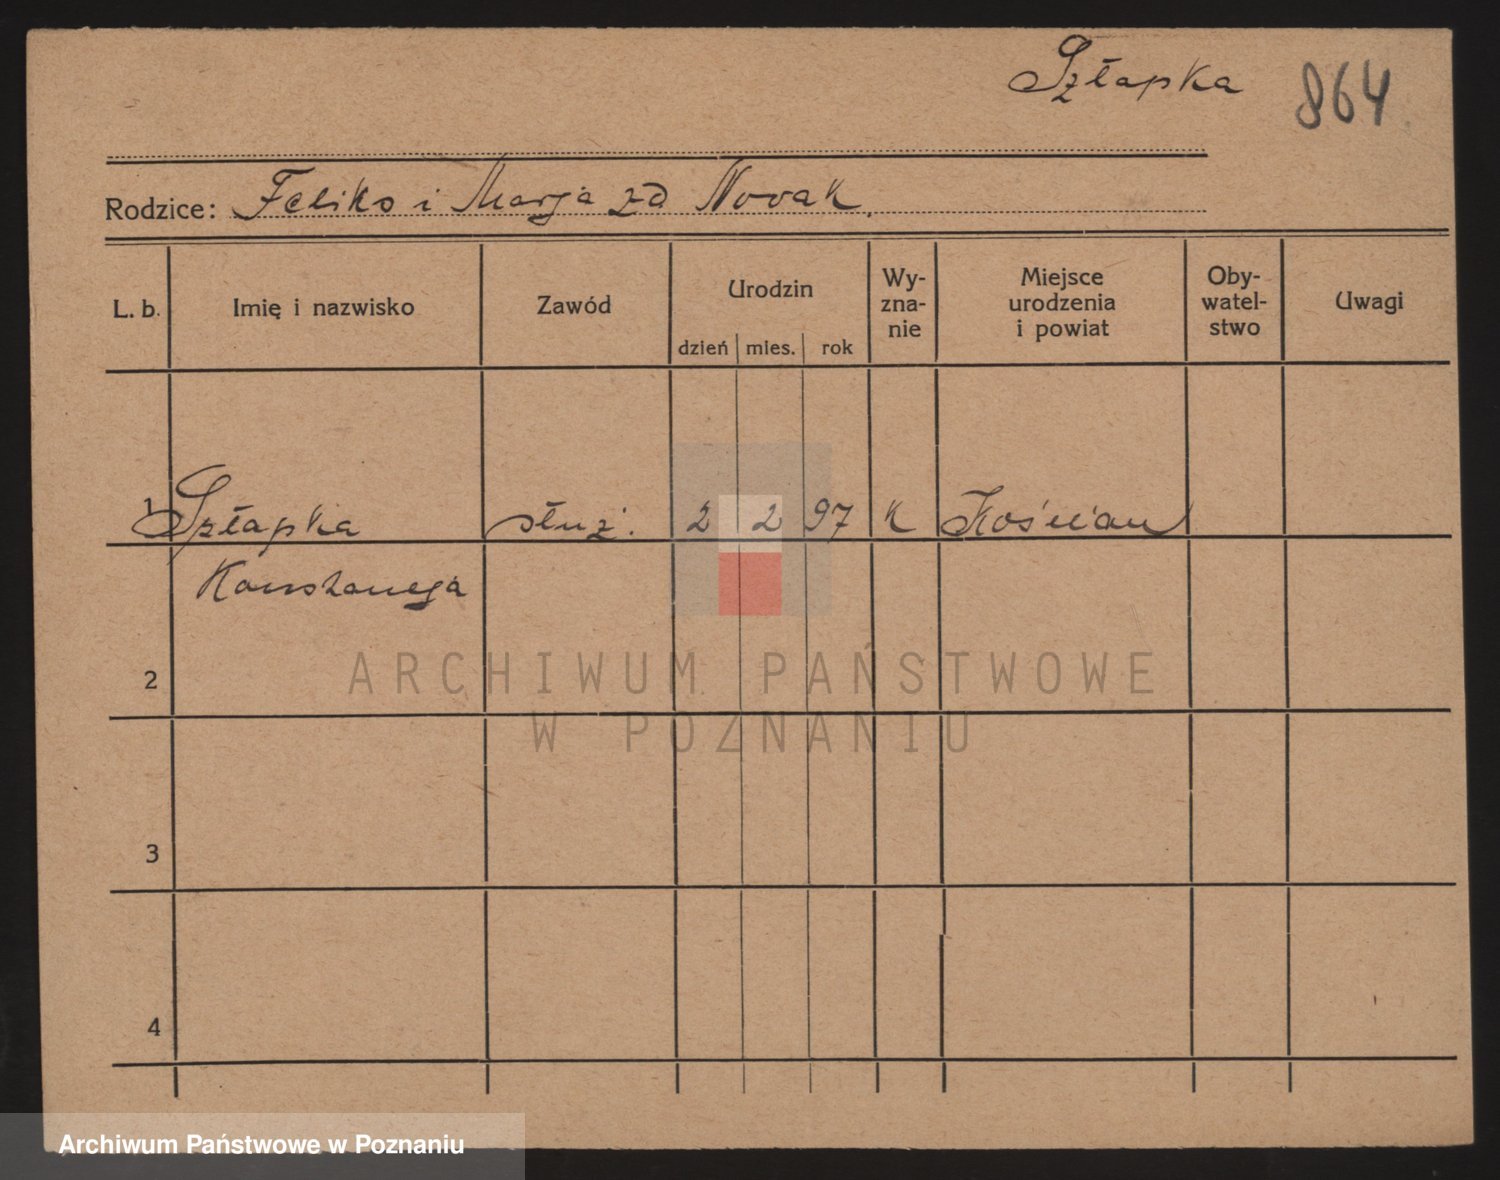 Szłapka 864
Rodzice: Feliks i Marja zd Novak.
L. b. Imię i nazwisko Zawód Urodzin dzień mies. rok Wy-zna-nie Miejsce urodzenia i powiat Oby-watel-stwo Uwagi
1 Szłapka służ. 2 2 97 K Kościan
Konstancja
2
ARCHIWUM PAŃSTWOWE
W POZNANIU
3
4
Archiwum Państwowe w Poznaniu